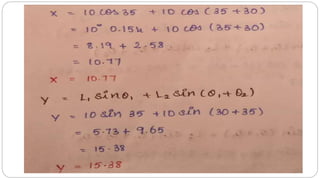 x = 10 cos 35 + 10 cos (35+30)
= 10 0.154 + 10 cos (35+30)
= 8.19 + 2.58
= 10.77
x = 10.77
y = L₁ sinθ₁ + L₂ sin (θ₁+θ₂)
y = 10 sin 35 + 10 sin (30+35)
= 5.73 + 9.65
= 15.38
y = 15.38